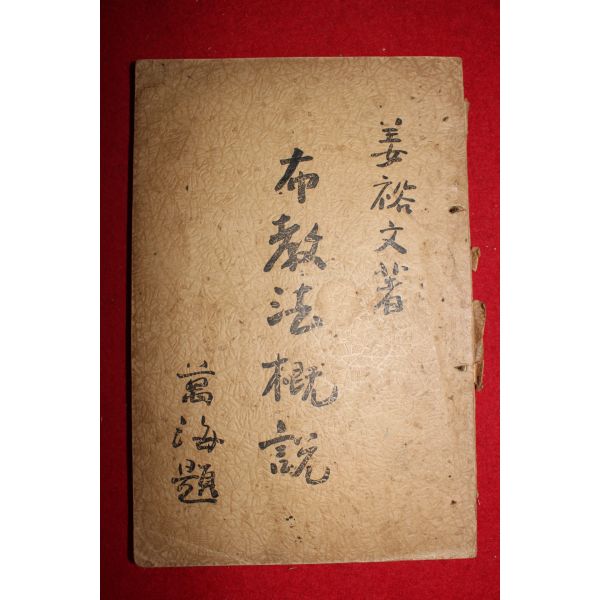 姜裕文著
布教法概說
萬海題